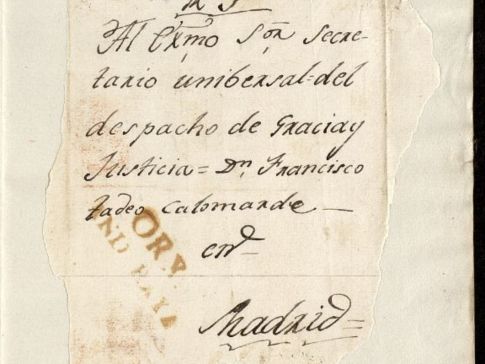 Al Exmo Sor Secre-
tario unibersal=del
despacho de Graciay
Justicia= Dn, Francisco
tadeo calomarde —
en
Madrid=